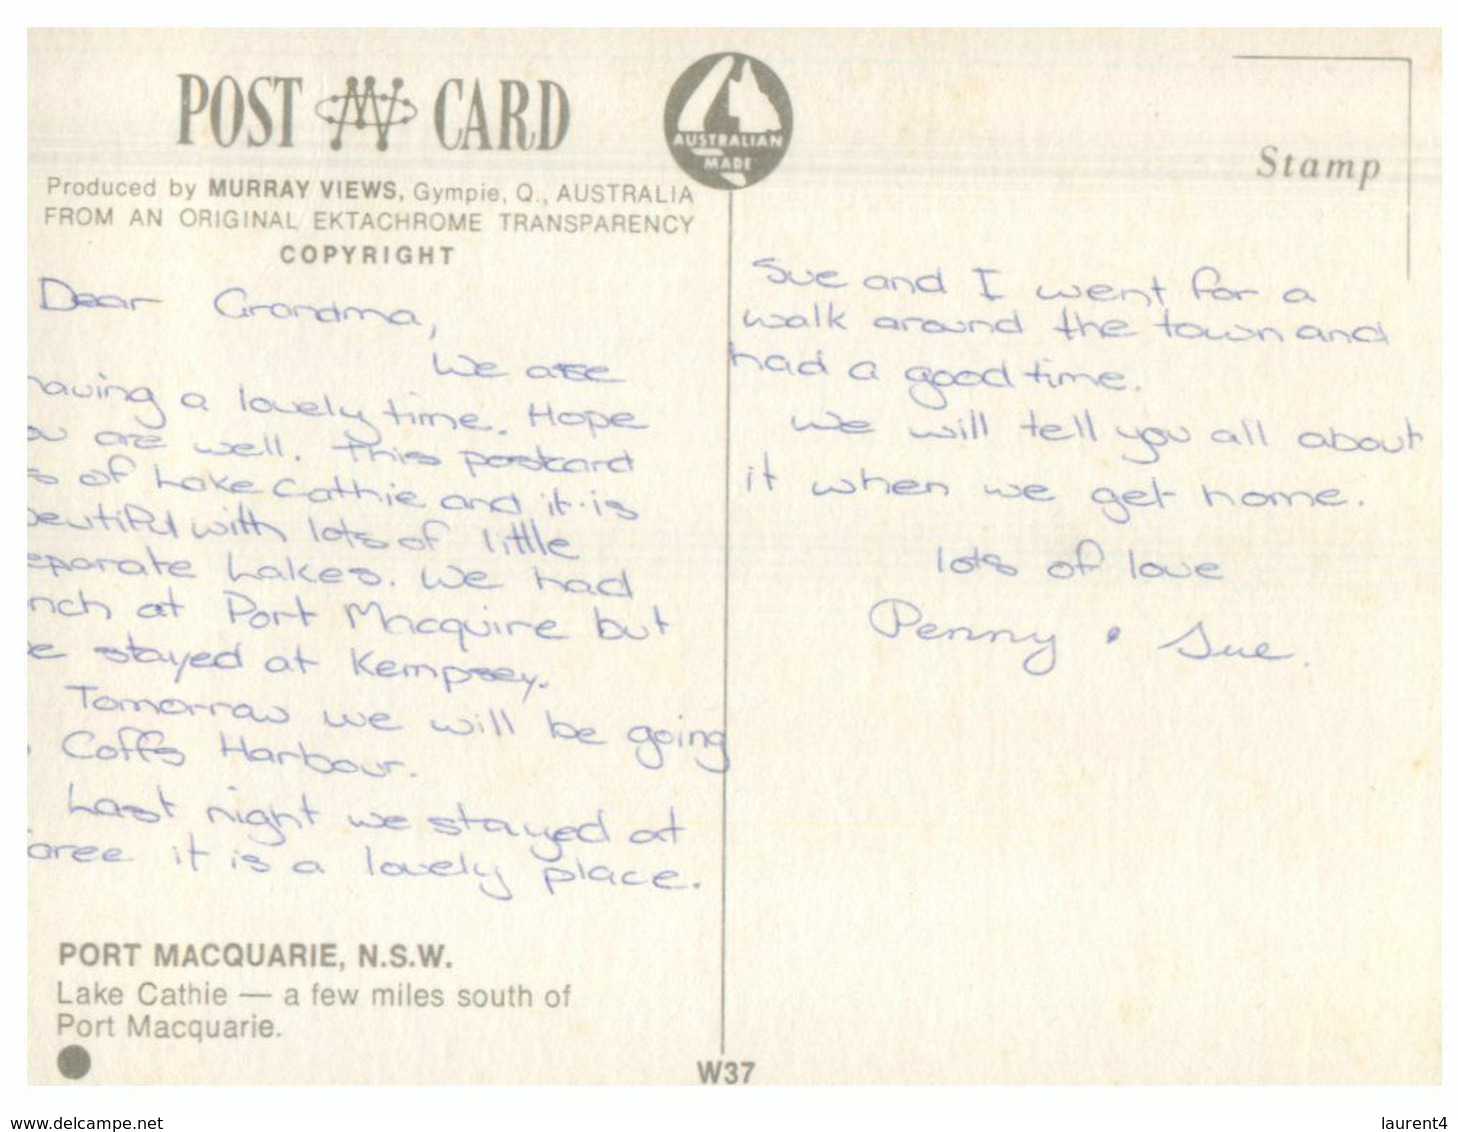 POST CARD
AUSTRALIAN
MADE
Stamp
Produced by MURRAY VIEWS, Gympie, Q., AUSTRALIA
FROM AN ORIGINAL EKTACHROME TRANSPARENCY
COPYRIGHT
Dear Grandma,
We are
having a lovely time. Hope
ou are well. This postcard
s of Lake Cathie and it is
beutiful with lots of little
eparate Lakes. We had
nch at Port Macquire but
e stayed at Kempsey.
Tomorrow we will be going
Coffs Harbour.
Last night we stayed at
aree it is a lovely place.
Sue and I went for a
walk around the town and
had a good time.
We will tell you all about
it when we get home.
lots of love
Penny & Sue.
PORT MACQUARIE, N.S.W.
Lake Cathie — a few miles south of
Port Macquarie.
W37
www.delcampe.net
laurent4